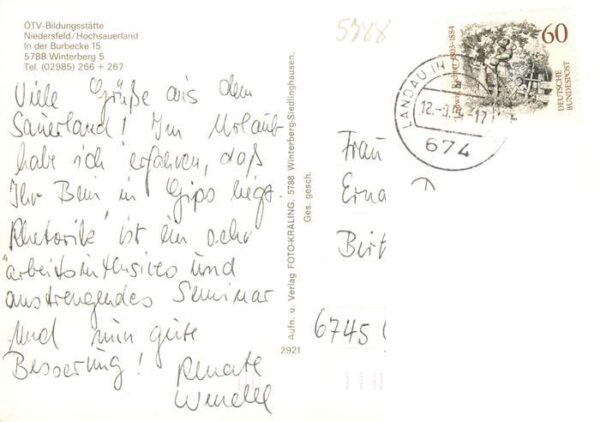 ÖTV-Bildungsstätte
Niedersfeld/Hochsauerland
In der Burbecke 15
5788 Winterberg 5
Tel. (02985) 266 + 267
Viele Grüße aus dem
Sauerland! Im Urlaub
habe ich erfahren, daß
Ihr Bein in Gips liegt.
Rhetorik ist ein sehr
arbeitsintensives und
anstrengendes Seminar
Und nun gute
Besserung!
Renate
Aufn. u. Verlag FOTO-KRÄLING, 5788 Winterberg-Siedlinghausen,
Ges. gesch.
2921
5788
60
DEUTSCHE
BUNDESPOST
1803-1884
LANDAU IN
12.-9.
-17
674
Frau
Erna
Birt
6745